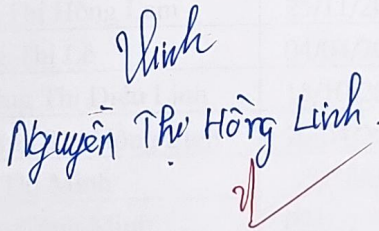 Linh
Nguyễn Thị Hồng Linh.